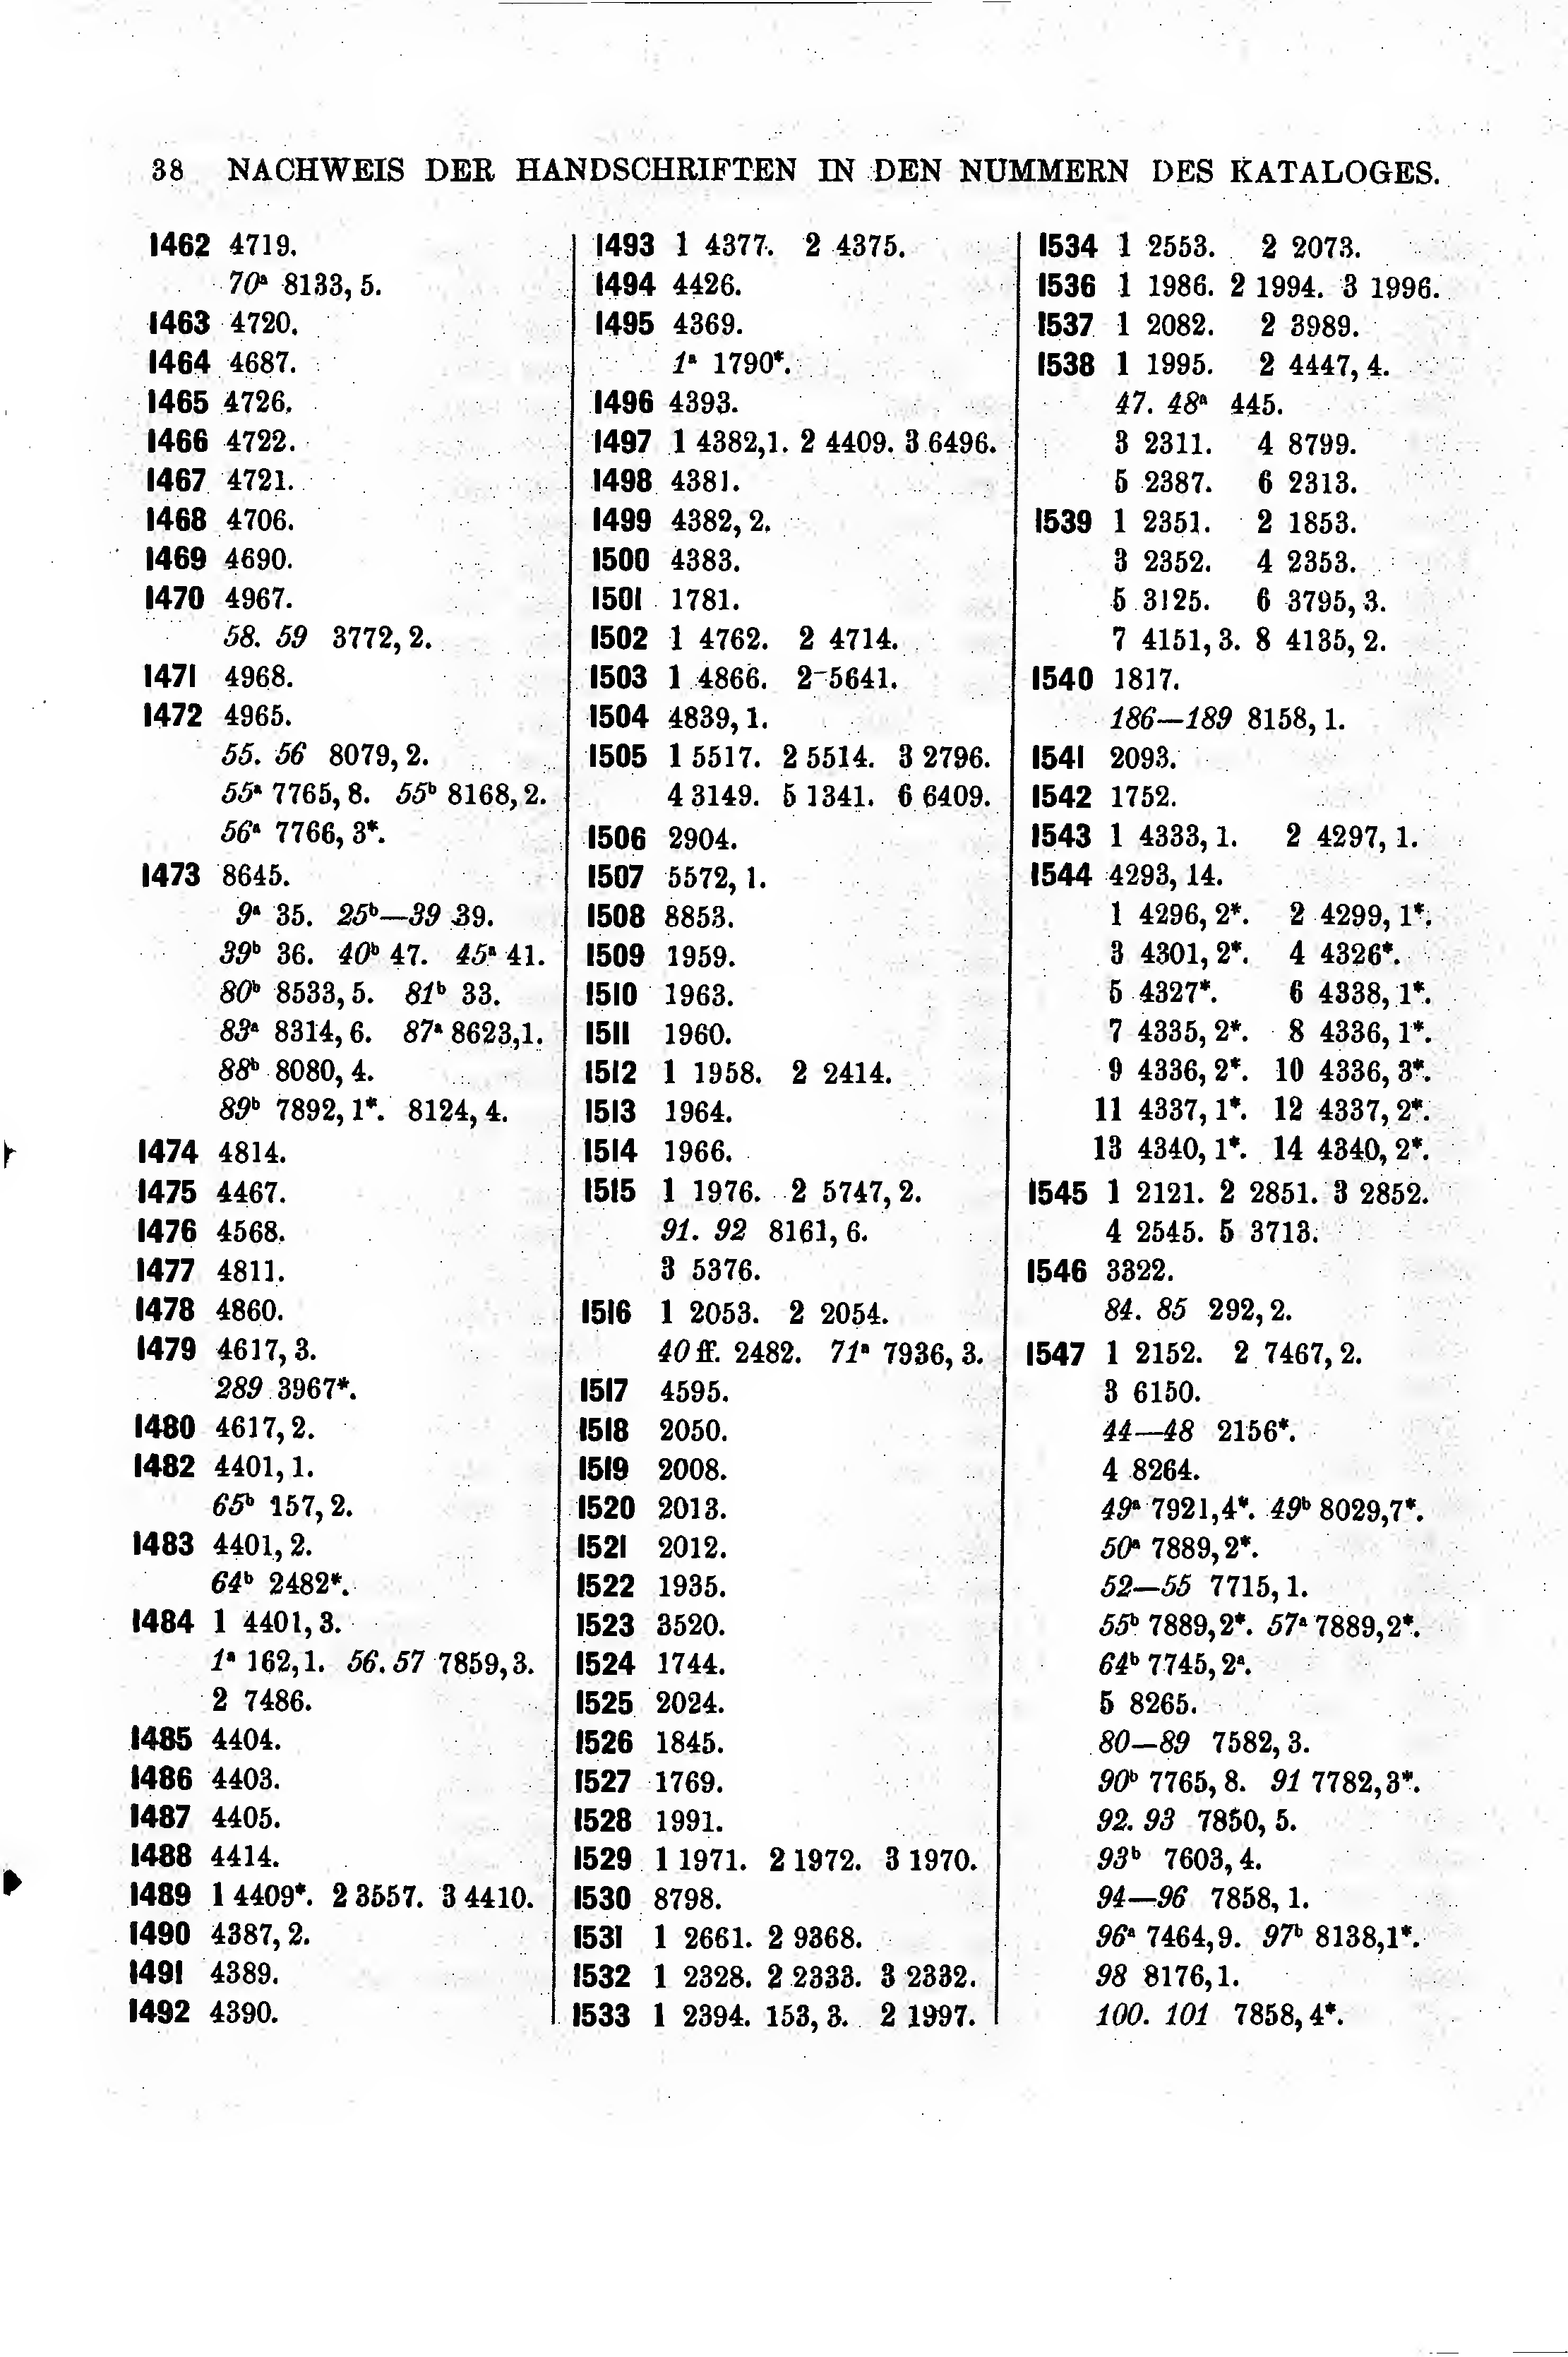 38 NACHWEIS DER HANDSCHRIFTEN IN DEN NUMMERN DES KATALOGES.
1462 4719.
70ᵃ 8133, 5.
1463 4720.
1464 4687.
1465 4726.
1466 4722.
1467 4721.
1468 4706.
1469 4690.
1470 4967.
58. 59 3772, 2.
1471 4968.
1472 4965.
55. 56 8079, 2.
55ᵃ 7765, 8. 55ᵇ 8168, 2.
56ᵃ 7766, 3*.
1473 8645.
9ᵃ 35. 25ᵇ—39 39.
39ᵇ 36. 40ᵇ 47. 45ᵃ 41.
80ᵇ 8533, 5. 81ᵇ 33.
83ᵃ 8314, 6. 87ᵃ 8623,1.
88ᵇ 8080, 4.
89ᵇ 7892, 1*. 8124, 4.
1474 4814.
1475 4467.
1476 4568.
1477 4811.
1478 4860.
1479 4617, 3.
289 3967*.
1480 4617, 2.
1482 4401, 1.
65ᵇ 157, 2.
1483 4401, 2.
64ᵇ 2482*.
1484 1 4401, 3.
1ᵃ 162,1. 56. 57 7859, 3.
2 7486.
1485 4404.
1486 4403.
1487 4405.
1488 4414.
1489 1 4409*. 2 3557. 3 4410.
1490 4387, 2.
1491 4389.
1492 4390.
1493 1 4377. 2 4375.
1494 4426.
1495 4369.
1ᵃ 1790*.
1496 4393.
1497 1 4382,1. 2 4409. 3 6496.
1498 4381.
1499 4382, 2.
1500 4383.
1501 1781.
1502 1 4762. 2 4714.
1503 1 4866. 2 5641.
1504 4839, 1.
1505 1 5517. 2 5514. 3 2796.
4 3149. 5 1341. 6 6409.
1506 2904.
1507 5572, 1.
1508 8853.
1509 1959.
1510 1963.
1511 1960.
1512 1 1958. 2 2414.
1513 1964.
1514 1966.
1515 1 1976. 2 5747, 2.
91. 92 8161, 6.
3 5376.
1516 1 2053. 2 2054.
40 ff. 2482. 71ᵃ 7936, 3.
1517 4595.
1518 2050.
1519 2008.
1520 2013.
1521 2012.
1522 1935.
1523 3520.
1524 1744.
1525 2024.
1526 1845.
1527 1769.
1528 1991.
1529 1 1971. 2 1972. 3 1970.
1530 8798.
1531 1 2661. 2 9368.
1532 1 2328. 2 2333. 3 2332.
1533 1 2394. 153, 3. 2 1997.
1534 1 2553. 2 2073.
1536 1 1986. 2 1994. 3 1996.
1537 1 2082. 2 3989.
1538 1 1995. 2 4447, 4.
47. 48ᵃ 445.
3 2311. 4 8799.
5 2387. 6 2313.
1539 1 2351. 2 1853.
3 2352. 4 2353.
5 3125. 6 3795, 3.
7 4151, 3. 8 4135, 2.
1540 1817.
186—189 8158, 1.
1541 2093.
1542 1752.
1543 1 4333, 1. 2 4297, 1.
1544 4293, 14.
1 4296, 2*. 2 4299, 1*.
3 4301, 2*. 4 4326*.
5 4327*. 6 4338, 1*.
7 4335, 2*. 8 4336, 1*.
9 4336, 2*. 10 4336, 3*.
11 4337, 1*. 12 4337, 2*.
13 4340, 1*. 14 4340, 2*.
1545 1 2121. 2 2851. 3 2852.
4 2545. 5 3713.
1546 3322.
84. 85 292, 2.
1547 1 2152. 2 7467, 2.
3 6150.
44—48 2156*.
4 8264.
49ᵃ 7921,4*. 49ᵇ 8029,7*.
50ᵃ 7889, 2*.
52—55 7715, 1.
55ᵇ 7889,2*. 57ᵃ 7889,2*.
64ᵇ 7745, 2ᵃ.
5 8265.
80—89 7582, 3.
90ᵇ 7765, 8. 91 7782,3*.
92. 93 7850, 5.
93ᵇ 7603, 4.
94—96 7858, 1.
96ᵃ 7464, 9. 97ᵇ 8138,1*.
98 8176, 1.
100. 101 7858, 4*.